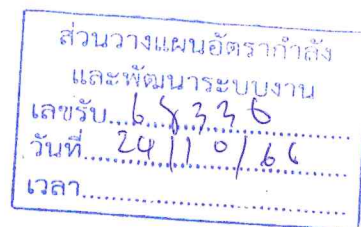 ส่วนวางแผนอัตรากำลัง
และพัฒนาระบบงาน
เลขรับ...68336
วันที่...24/10/66
เวลา...